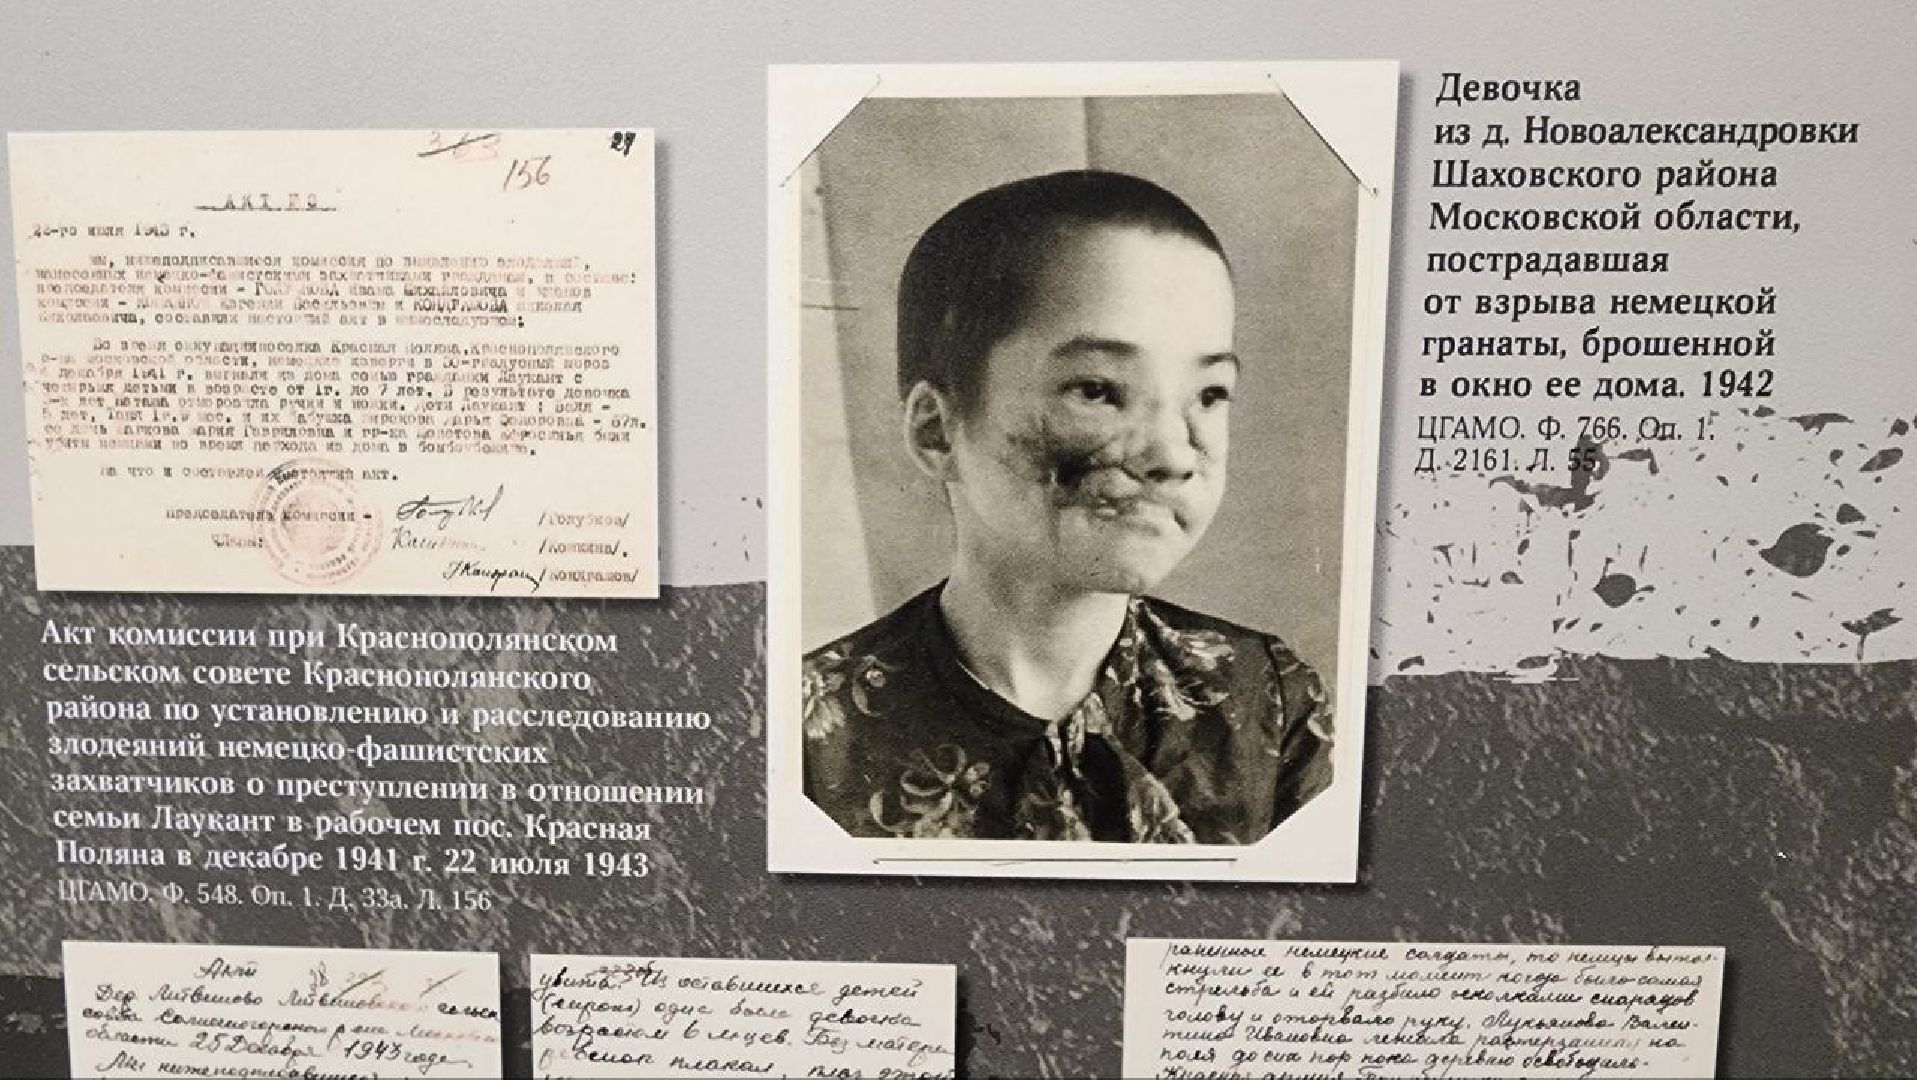 Девочка
из д. Новоалександровки
Шаховского района
Московской области,
пострадавшая
от взрыва немецкой
гранаты, брошенной
в окно ее дома. 1942
ЦГАМО. Ф. 766. Оп. 1.
Д. 2161. Л. 55
27
156
АКТ
22-го июля 1943 г.
мы, нижеподписавшиеся комиссия по
нанесенных немецко-фашистскими захватчиками гражданам, в составе:
председателя комиссии - Ивана Михайловича и членов
комиссии - Васильевны и КОНДРАШОВА Николая
Николаевича, составили настоящий акт в нижеследующем:
Во время оккупации поселка Красная Поляна, Краснополянского
р-на Московской области, немецкие изверги в 30-градусный мороз
декабря 1941 г. выгнали из дома семью гражданки Лаукант с
четырьмя детьми в возрасте от 1г. до 7 лет. В результате девочка
лет отморозила ручки и ножки. дети Лаукант :
5 лет, Толя 1г. и их бабушка Дарья Федоровна - 67л.
Мария Гавриловна и гр-ка были
убиты немцами во время перехода из дома в бомбоубежище.
на что и составлен настоящий акт.
председатель комиссии - /Голубков/
Члены: /Кошкина/.
/Кондрашов/
Акт комиссии при Краснополянском
сельском совете Краснополянского
района по установлению и расследованию
злодеяний немецко-фашистских
захватчиков о преступлении в отношении
семьи Лаукант в рабочем пос. Красная
Поляна в декабре 1941 г. 22 июля 1943
ЦГАМО. Ф. 548. Оп. 1. Д. 33а. Л. 156
Акт
Дер Литвиново Литвиновского сельск
совета Солнечногорского р-на Московской
области 25 Декабря 1943 годе
Мы нижеподписавшиеся
убита. Из оставшихся детей
(сирот) одна была девочка
возрастом 6 м-цев. Без матери
ребенок плакал,
раненные немецкие солдаты, то немцы вытол-
кнули ее в тот момент когда была самая
стрельба и ей разбило осколками снарядов
голову и оторвало руку. Лукьянова Вален-
тина Ивановна лежала растерзанная на
поля до сих пор пока деревню освободила-
Красная армия